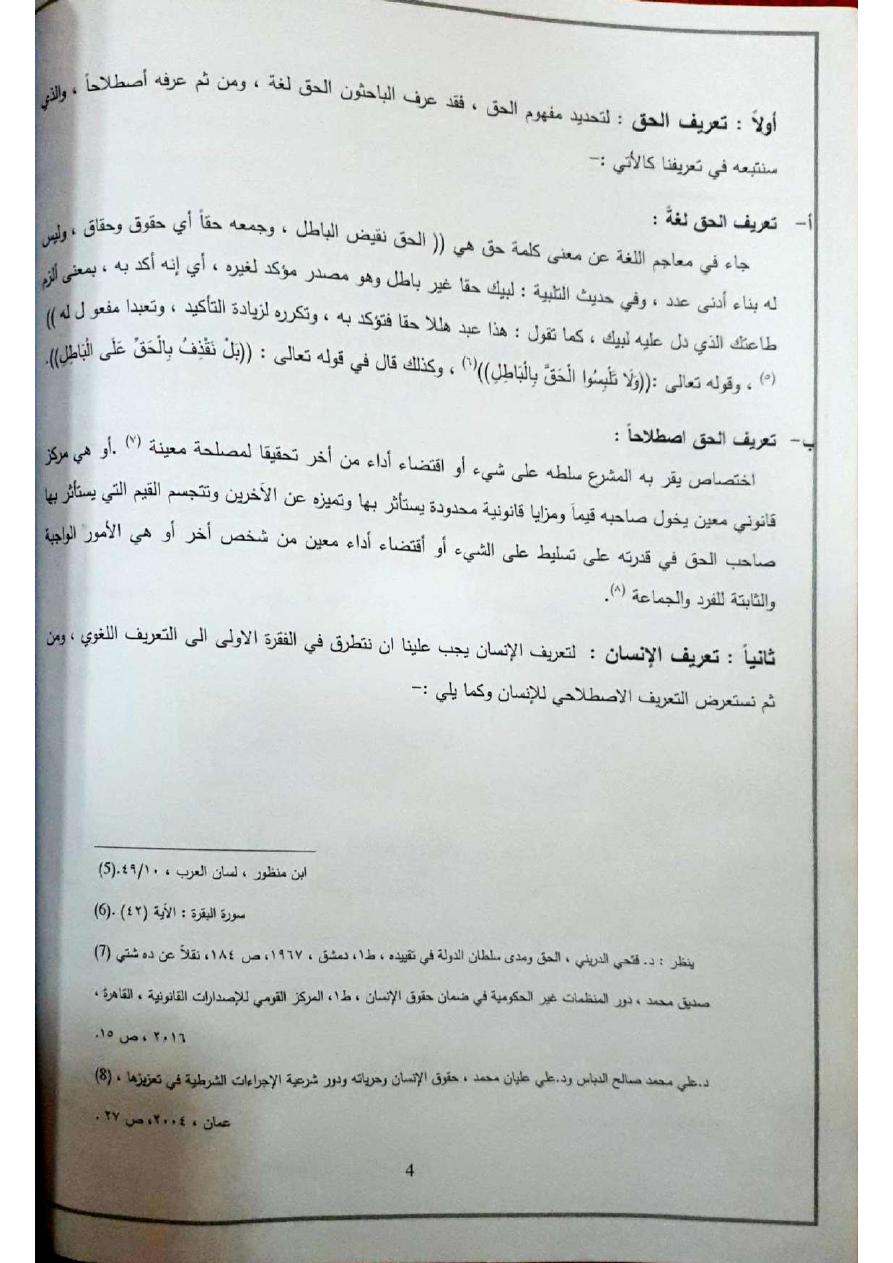 أولاً : تعريف الحق : لتحديد مفهوم الحق ، فقد عرف الباحثون الحق لغة ، ومن ثم عرفه أصطلاحاً ، والذي
سنتبعه في تعريفنا كالأتي :-
أ- تعريف الحق لغةً :
جاء في معاجم اللغة عن معنى كلمة حق هي (( الحق نقيض الباطل ، وجمعه حقاً أي حقوق وحقاق ، وليس
له بناء أدنى عدد ، وفي حديث التلبية : لبيك حقا غير باطل وهو مصدر مؤكد لغيره ، أي إنه أكد به ، بمعنى ألزم
طاعتك الذي دل عليه لبيك ، كما تقول : هذا عبد هللا حقا فتؤكد به ، وتكرره لزيادة التأكيد ، وتعبدا مفعو ل له ))
(٥) ، وقوله تعالى :((وَلَا تَلْبِسُوا الْحَقَّ بِالْبَاطِلِ))(٦) ، وكذلك قال في قوله تعالى : ((بَلْ نَقْذِفُ بِالْحَقِّ عَلَى الْبَاطِلِ)).
ب- تعريف الحق اصطلاحاً :
اختصاص يقر به المشرع سلطه على شيء أو اقتضاء أداء من أخر تحقيقا لمصلحة معينة (٧) .أو هي مركز
قانوني معين يخول صاحبه قيماً ومزايا قانونية محدودة يستأثر بها وتميزه عن الآخرين وتتجسم القيم التي يستأثر بها
صاحب الحق في قدرته على تسليط على الشيء أو أقتضاء أداء معين من شخص أخر أو هي الأمور الواجبة
والثابتة للفرد والجماعة (٨).
ثانياً : تعريف الإنسان : لتعريف الإنسان يجب علينا ان نتطرق في الفقرة الاولى الى التعريف اللغوي ، ومن
ثم نستعرض التعريف الاصطلاحي للإنسان وكما يلي :-
ابن منظور ، لسان العرب ، ٤٩/١٠.(5)
سورة البقرة : الأية (٤٢) .(6)
ينظر : د. فتحي الدريني ، الحق ومدى سلطان الدولة في تقييده ، ط١، دمشق ، ١٩٦٧، ص ١٨٤، نقلاً عن ده شتي (7)
صديق محمد ، دور المنظمات غير الحكومية في ضمان حقوق الإنسان ، ط١، المركز القومي للإصدارات القانونية ، القاهرة ،
٢٠١٦ ، ص ١٥.
د.علي محمد صالح الدباس ود.علي عليان محمد ، حقوق الإنسان وحرياته ودور شرعية الإجراءات الشرطية في تعزيزها ، (8)
عمان ، ٢٠٠٤، ص ٢٧ .
4